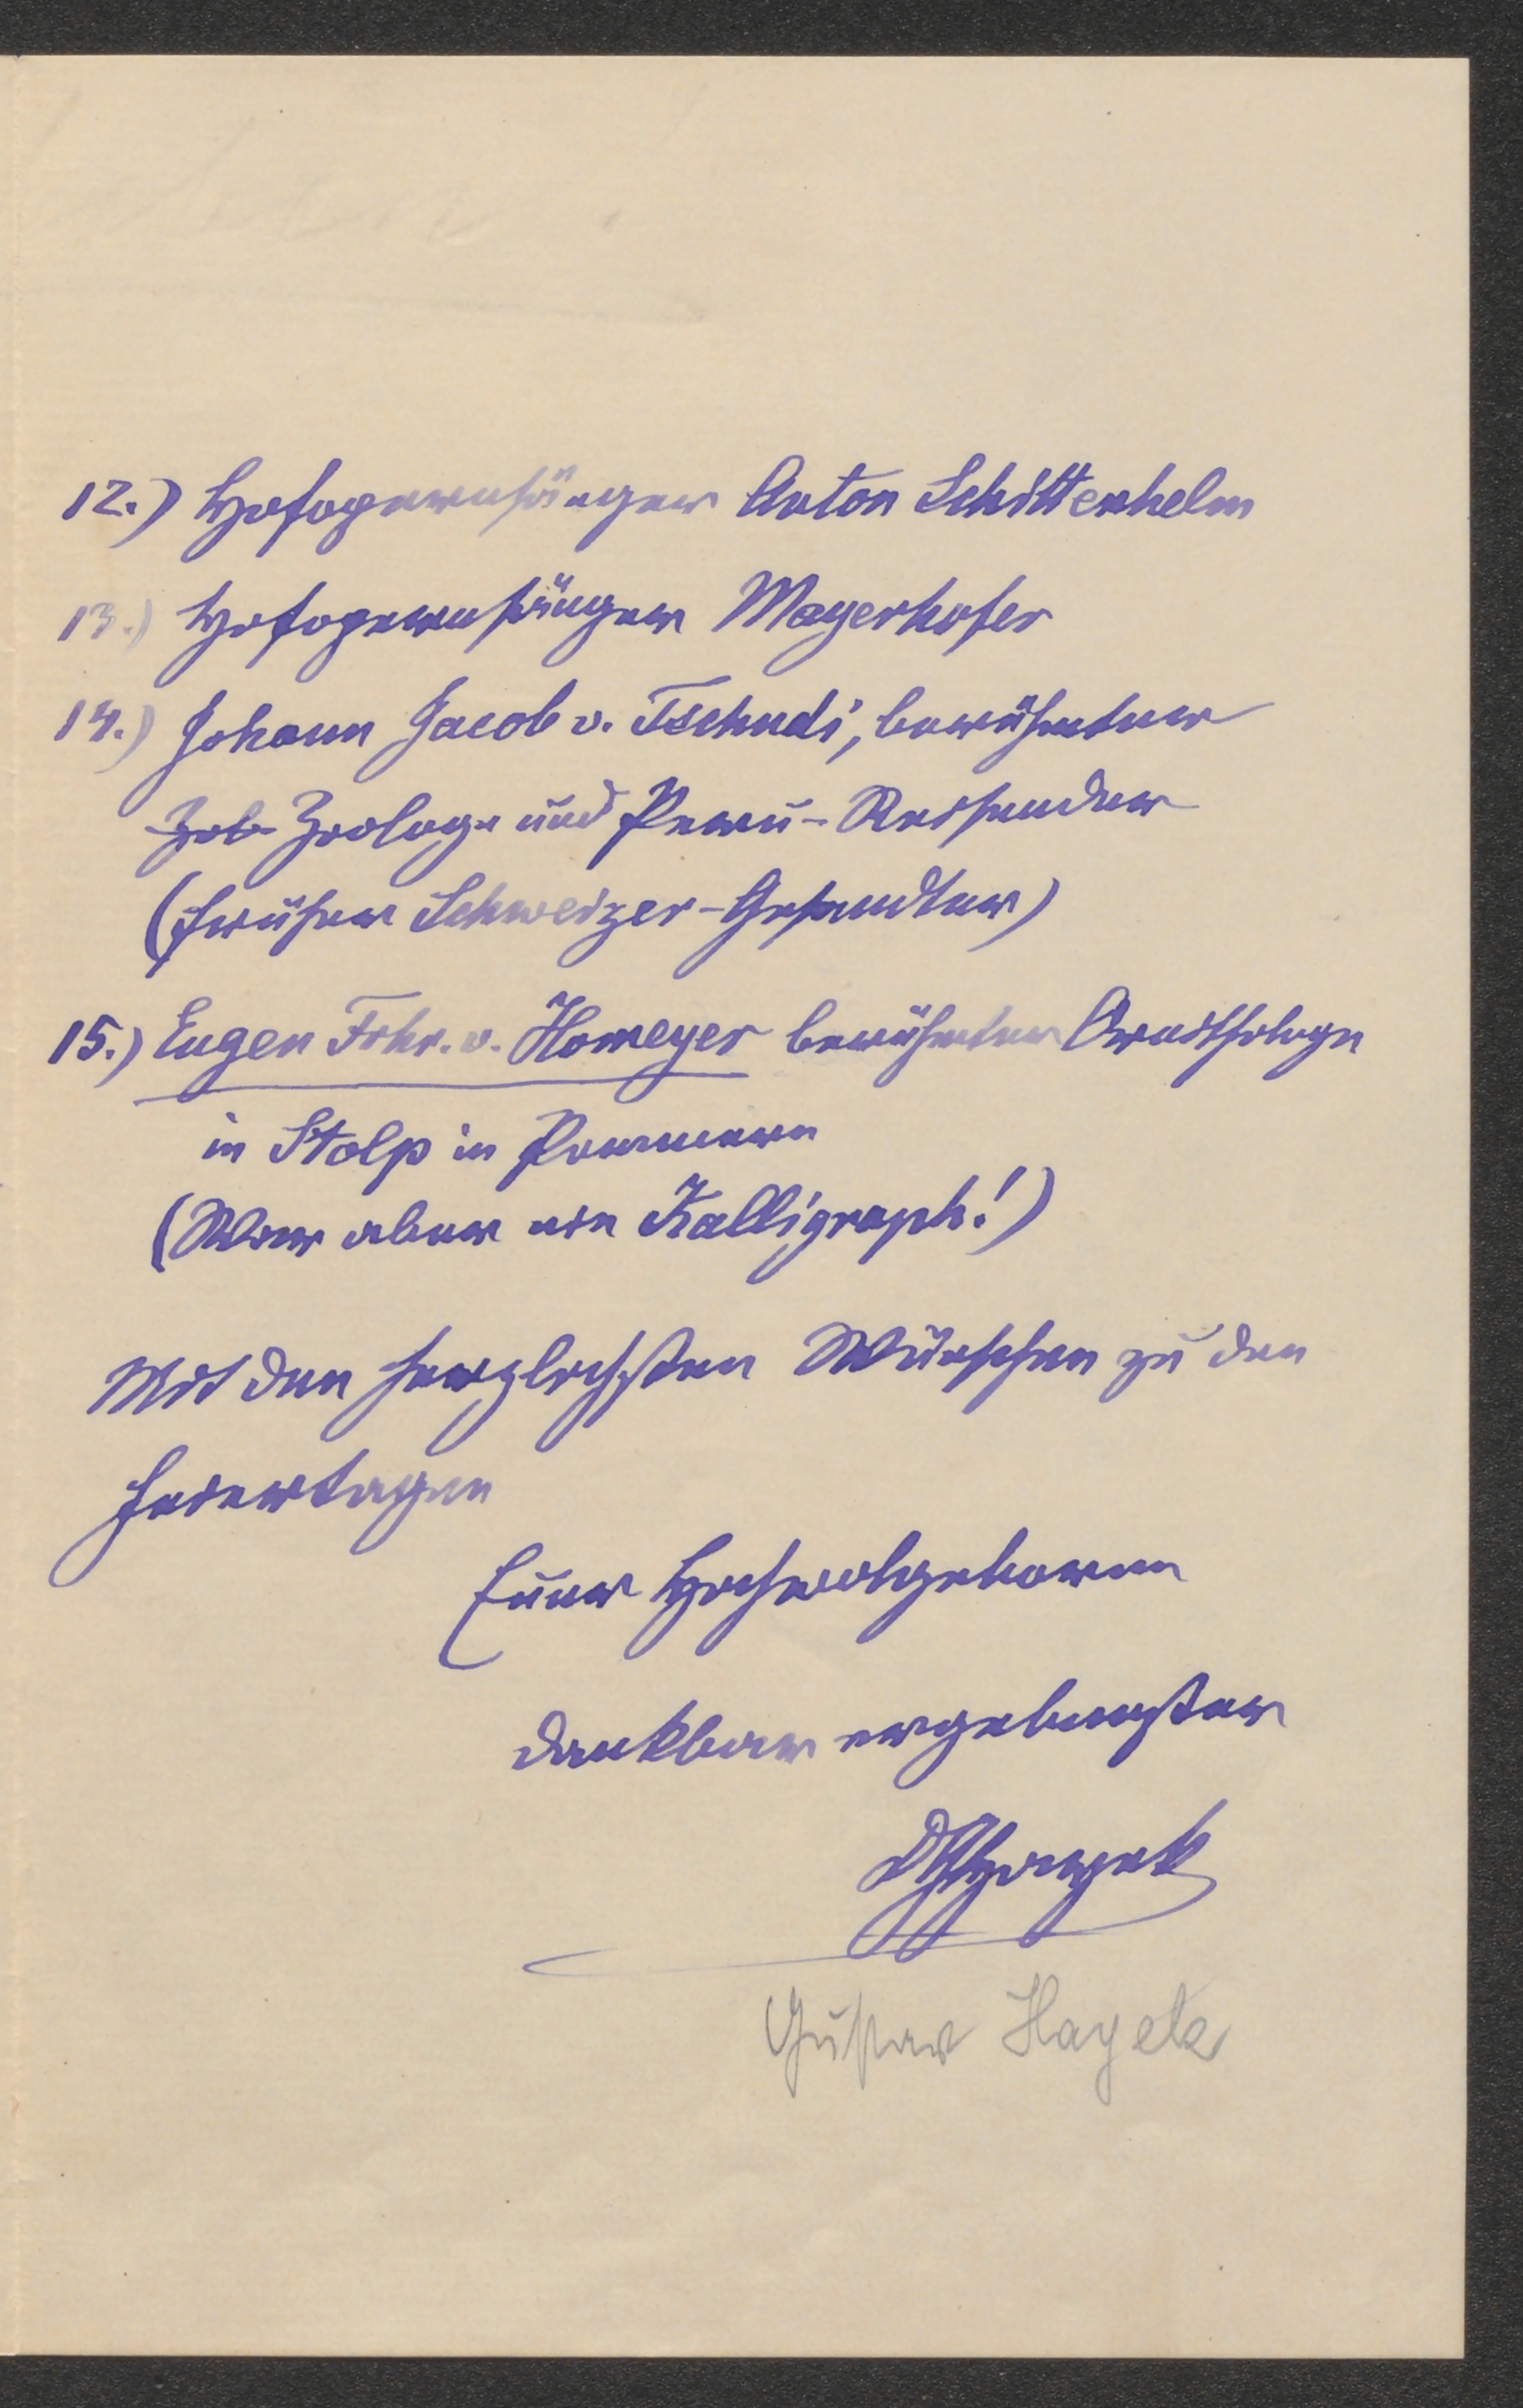 12.) Hofopernsänger Anton Schittenhelm
13.) Hofopernsänger Mayerhofer
14.) Johann Jacob v. Tschudi, berühmter
Zoologe und Peru-Reisender
(früher Schweizer-Gesandter)
15.) Eugen Frhr. v. Homeyer berühmter Ornithologe
in Stolp in Pommern
(War aber ein Kalligraph!)
Mit den herzlichsten Wünschen zu den
Feiertagen
Euer Hochwolgeboren
dankbar ergebenster
GHayek
Gustav Hayek